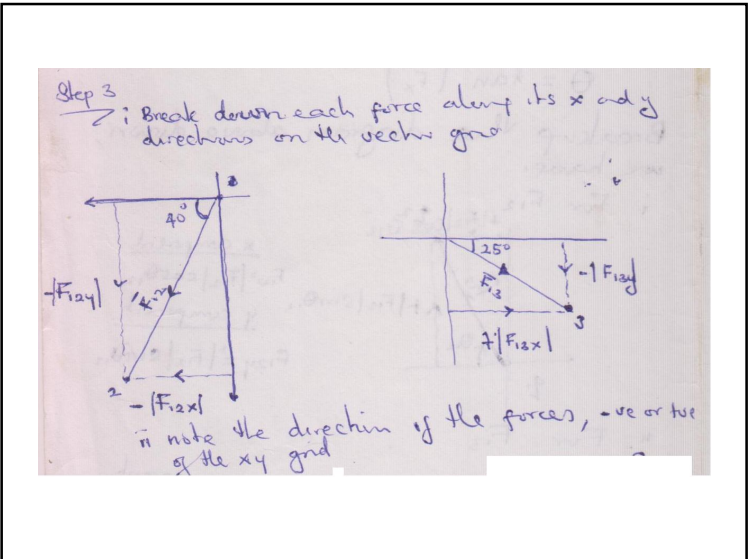 Step 3
i Break down each force along its x and y
directions on the vector grid
1
40°
25°
-|F12y|
F12
F13
-|F13y|
3
+|F13x|
2
-|F12x|
ii note the direction of the forces, -ve or +ve
of the xy grid